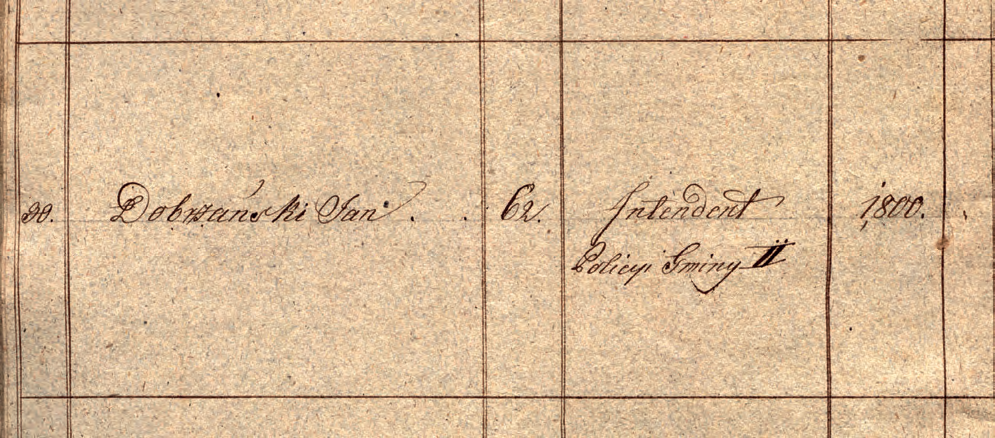 30. Dobrzański Jan . . 62. Intendent 1800.
Policyi Gminy II